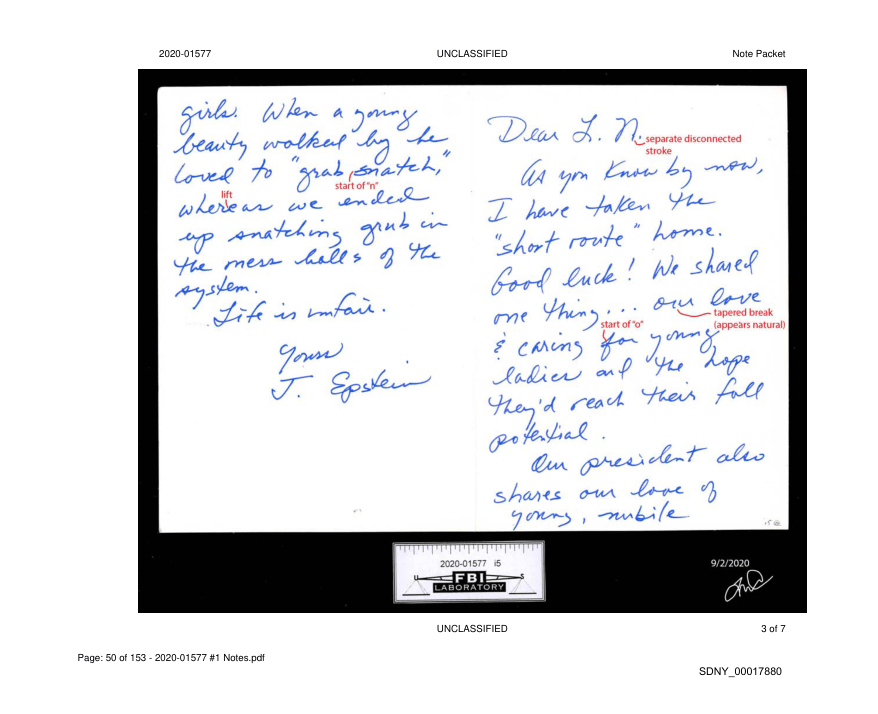 2020-01577
UNCLASSIFIED
Note Packet
Dear L. N.
separate disconnected
stroke
As you know by now,
I have taken the
"short route" home.
Good luck! We shared
one thing... our love
tapered break
(appears natural)
start of "o"
& caring for young
ladies and the hope
they'd reach their full
potential.
Our president also
shares our love of
young, nubile
girls. When a young
beauty walked by he
loved to "grab snatch,"
start of "n"
lift
whereas we ended
up snatching grub in
the mess halls of the
system.
Life is unfair.
Yours
J. Epstein
2020-01577 i5
U S
FBI
LABORATORY
9/2/2020
UNCLASSIFIED
3 of 7
Page: 50 of 153 - 2020-01577 #1 Notes.pdf
SDNY_00017880